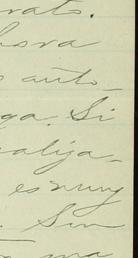 rato.
hora
s auto-
ga. Si
aliza-
es muy
. Sin